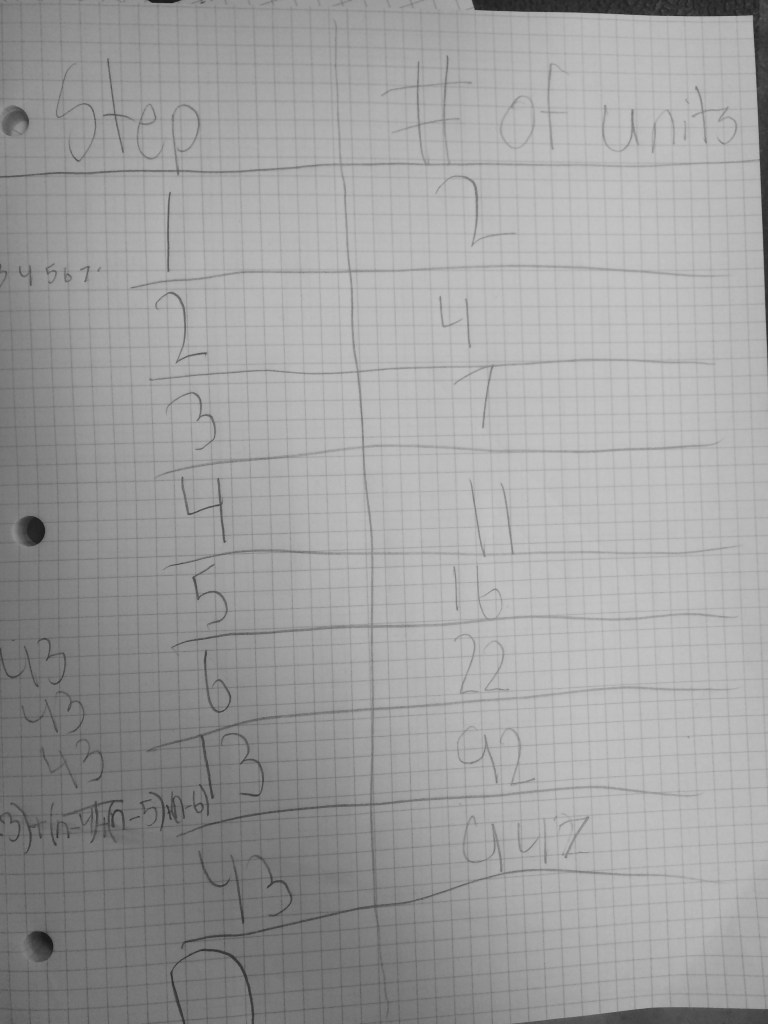 Step # of units
1 2
3 4 5 6 7.
2 4
3 7
4 11
5 16
43
6 22
43
43
13 92
3)+(n-4)+(n-5)+(n-6)
43 947
n